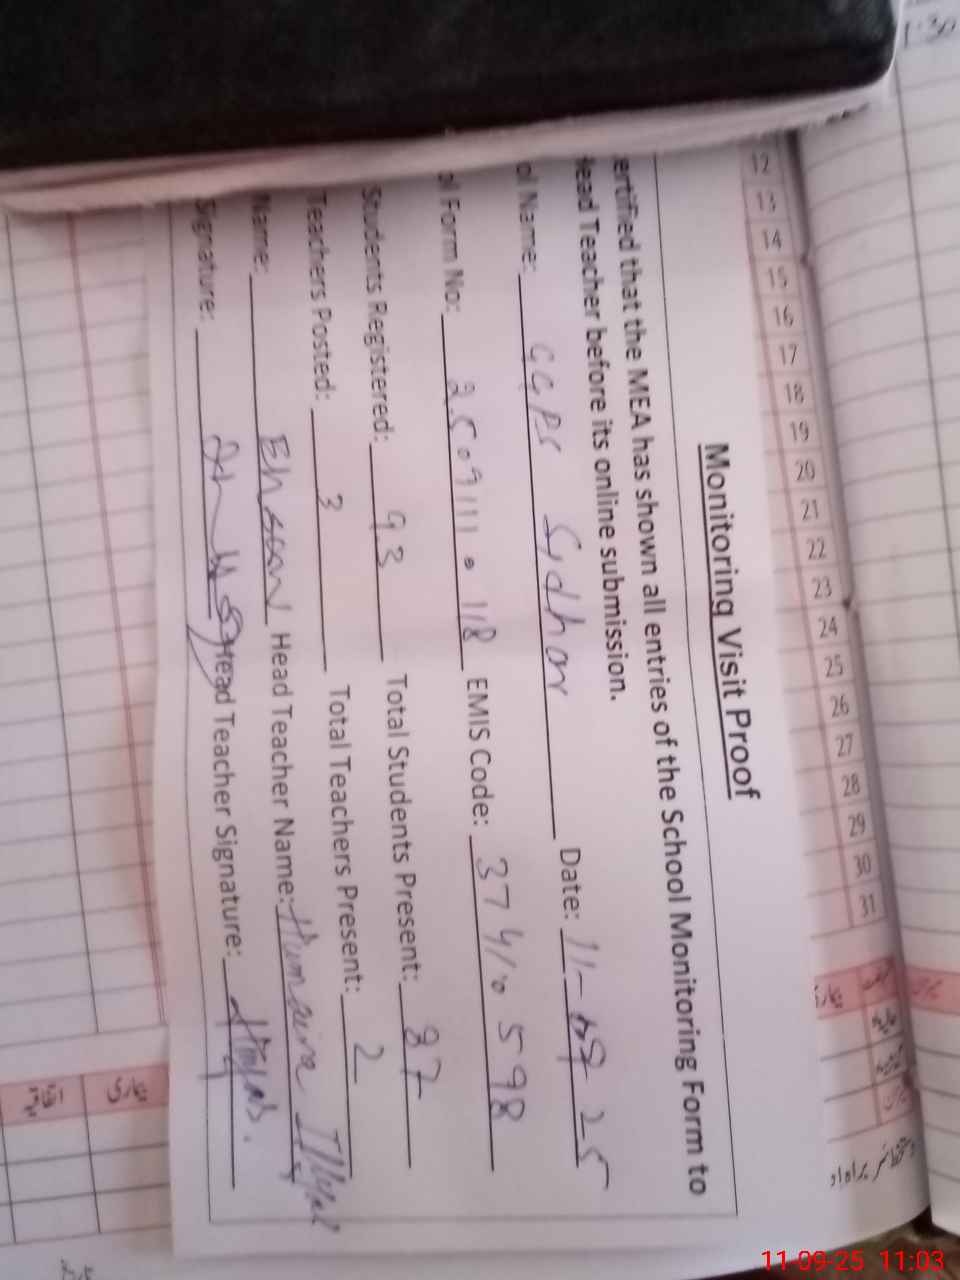 12 13 14 15 16 17 18 19 20 21 22 23 24 25 26 27 28 29 30 31
Monitoring Visit Proof
ertified that the MEA has shown all entries of the School Monitoring Form to
Head Teacher before its online submission.
ol Name: GGPS Sydhar Date: 11-09 25
ol Form No: 2509111 0 118 EMIS Code: 37410598
Students Registered: 93 Total Students Present: 87
Teachers Posted: 3 Total Teachers Present: 2
Name: Ehsan Head Teacher Name: Humaira Ilyas
Signature: Head Teacher Signature:
بیماری
11-09-25 11:03